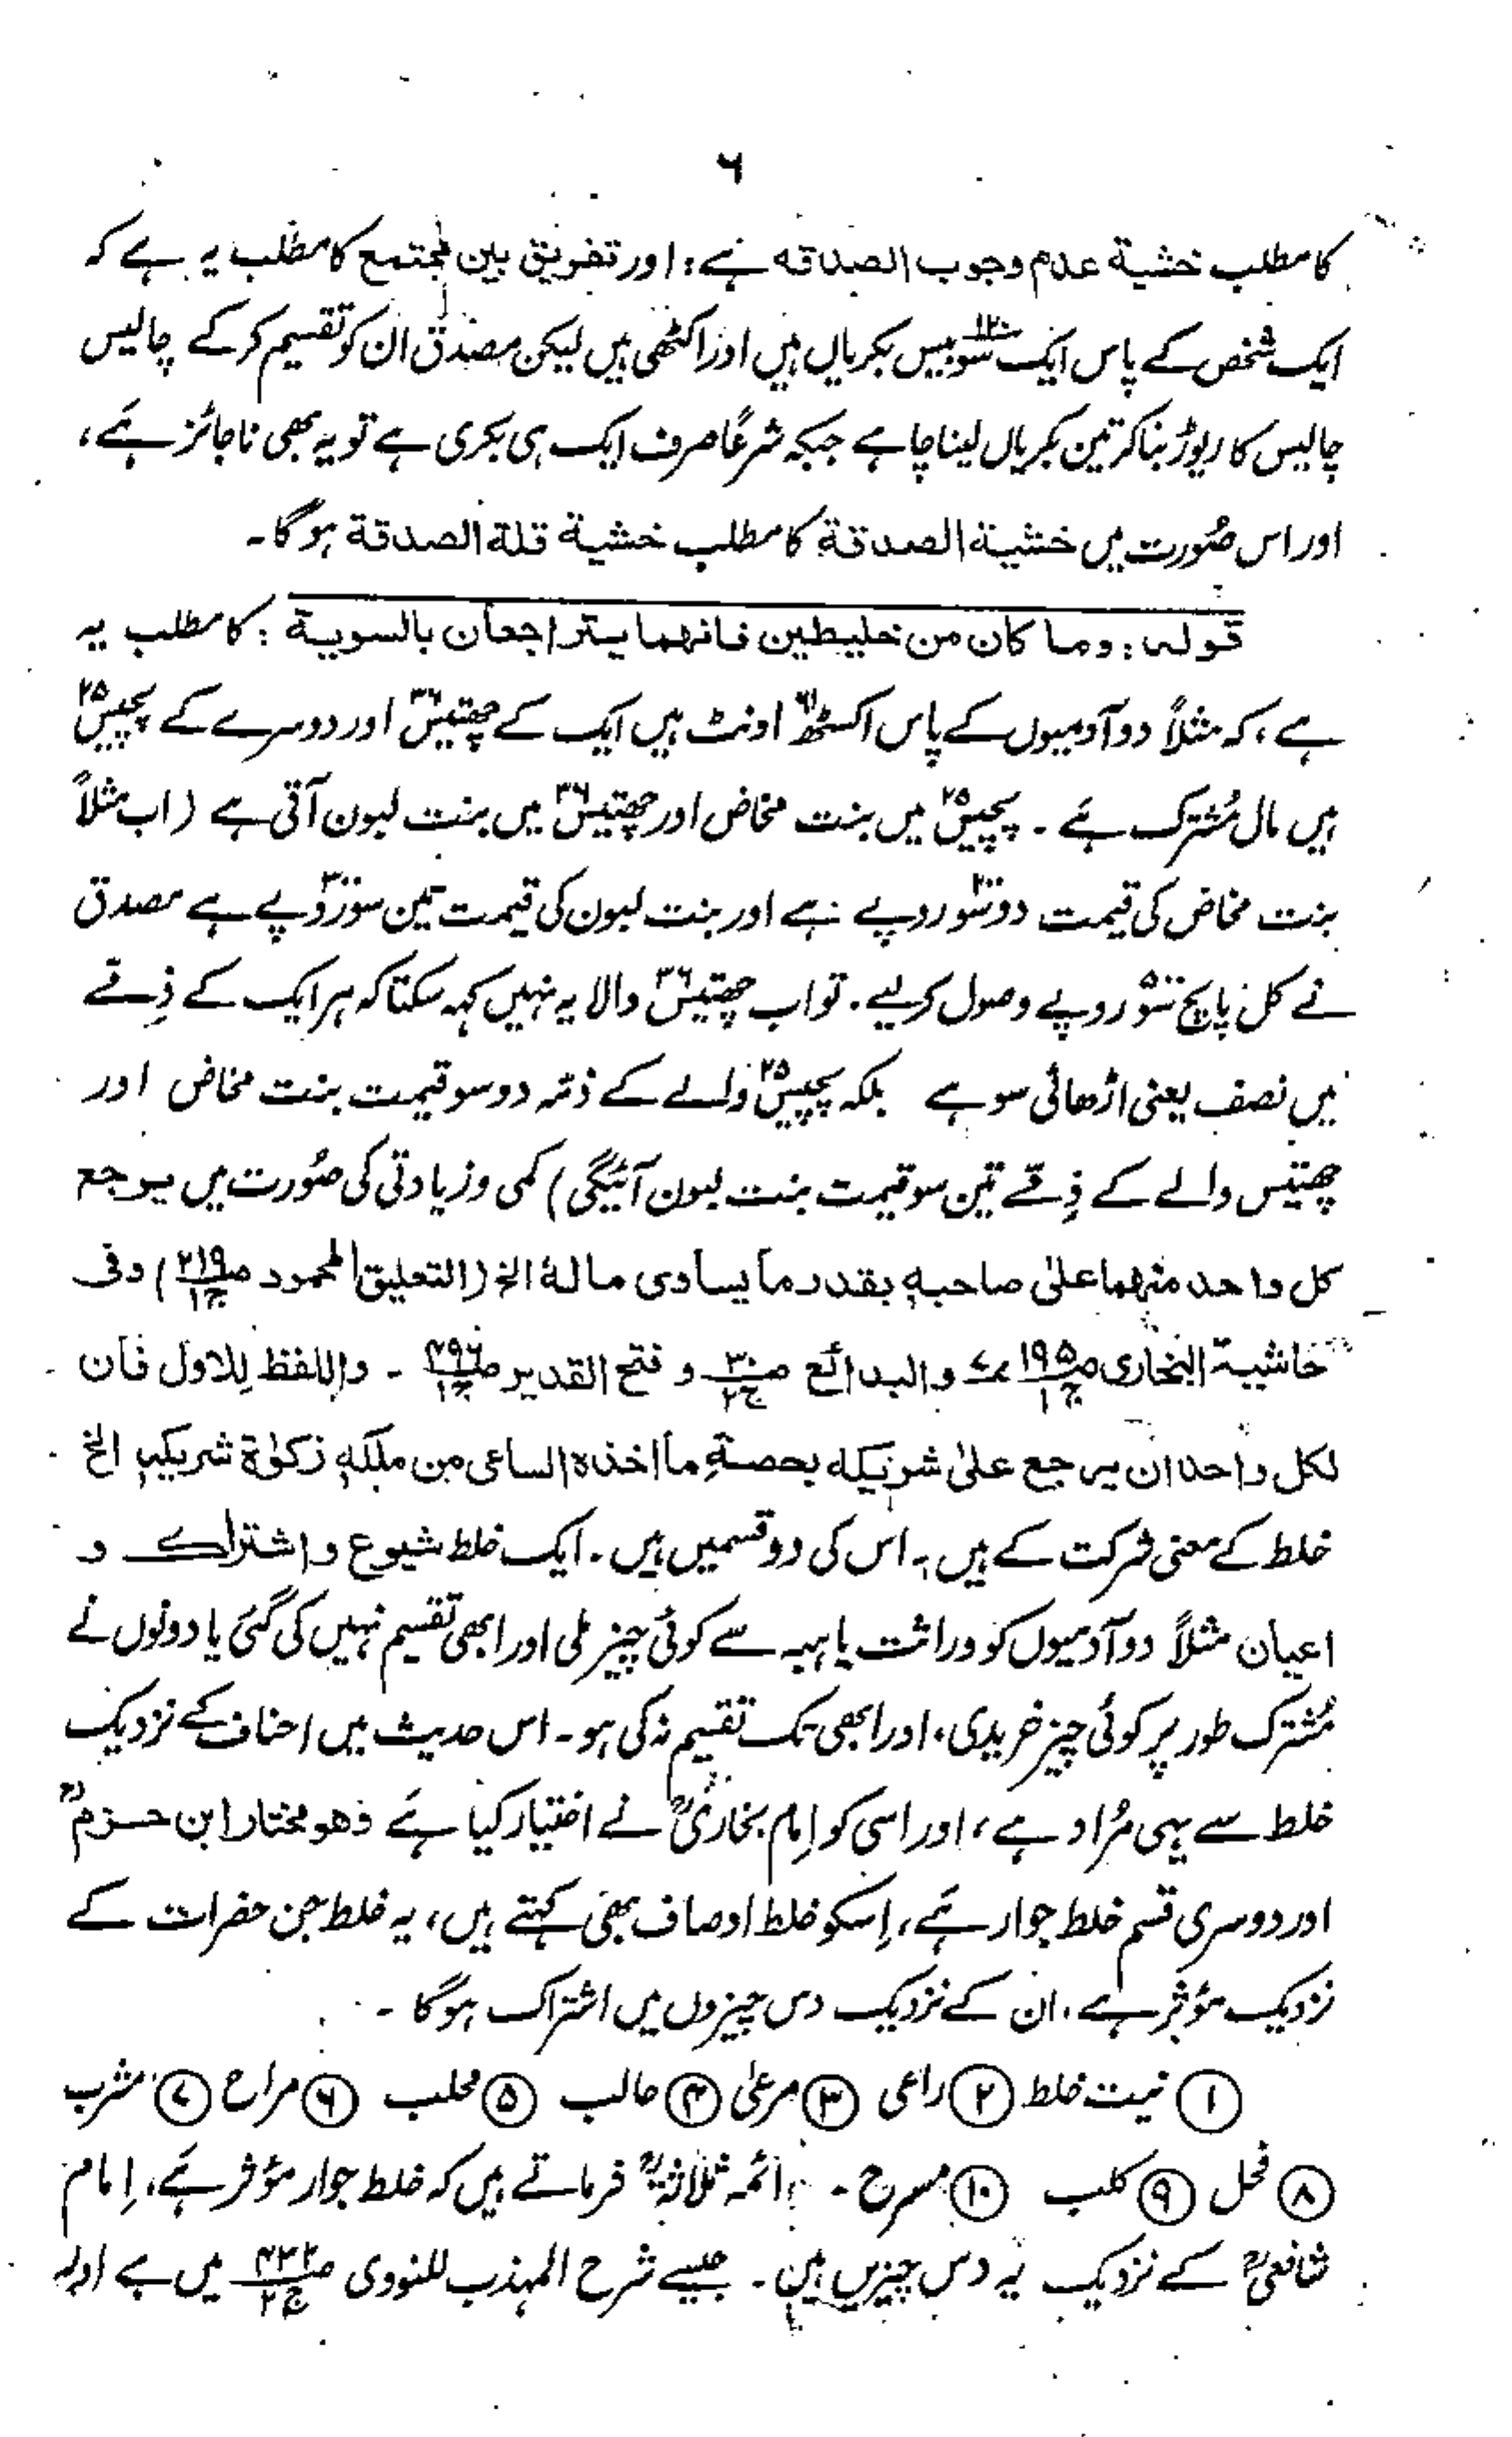 ٦
کا مطلب خشیة عدم وجوب الصدقه ہے، اور تفریق بین مجتمع کا مطلب یہ ہے کہ
ایک شخص کے پاس ایک سو بیس ۱۲۰ بکریاں ہیں اور اکٹھی ہیں لیکن مصدق ان کو تقسیم کر کے چالیس
چالیس کا ریوڑ بنا کر تین بکریاں لینا چاہے جبکہ شرعًا صرف ایک ہی بکری ہے تو یہ بھی ناجائز ہے،
اور اس صُورت میں خشیة الصدقة کا مطلب خشیة قلة الصدقة ہوگا۔
قولہ: وما کان من خلیطین فانهما یتراجعان بالسویة: کا مطلب یہ
ہے، کہ مثلاً دو آدمیوں کے پاس اکسٹھ ۶۱ اونٹ ہیں ایک کے چھتیس ۳۶ اور دوسرے کے پچیس ۲۵
ہیں مال مُشترک ہے۔ پچیس ۲۵ میں بنت مخاض اور چھتیس ۳۶ میں بنت لبون آتی ہے (اب مثلاً
بنت مخاض کی قیمت دو سو ۲۰۰ روپے ہے اور بنت لبون کی قیمت تین سو ۳۰۰ روپے ہے مصدق
نے کل پانچ سو ۵۰۰ روپے وصول کر لیے۔ تو اب چھتیس ۳۶ والا یہ نہیں کہہ سکتا کہ ہر ایک کے ذِمّے
میں نصف یعنی اڑھائی سو ہے بلکہ پچیس ۲۵ والے کے ذمّہ دو سو قیمت بنت مخاض اور
چھتیس والے کے ذِمّے تین سو قیمت بنت لبون آئیگی) کمی و زیادتی کی صُورت میں یرجع
کل واحد منهما علیٰ صاحبہٖ بقدر ما یساوی مالهٗ الخ (التعلیق المحمود ص۲۱۹ ج۱) وفی
حاشیة البخاری ص۱۹۵ ج۱ والبدائع ص۳۰ ج۲ و فتح القدیر ص۴۹۶ ج۱۔ واللفظ للاول فان
لکل واحد ان یرجع علیٰ شریکه بحصةِ ما اخذه الساعی من ملکهٖ زکوٰة شریکهٖ الخ
خلط کے معنی شرکت کے ہیں، اس کی دو قسمیں ہیں۔ ایک خلط شیوع و اشتراک و
اعیان مثلاً دو آدمیوں کو وراثت یا ہبہ سے کوئی چیز ملی اور ابھی تقسیم نہیں کی گئی یا دونوں نے
مُشترک طور پر کوئی چیز خریدی، اور ابھی تک تقسیم نہ کی ہو۔ اس حدیث میں احناف کے نزدیک
خلط سے یہی مُراد ہے، اور اسی کو اِمام بخاریؒ نے اختیار کیا ہے وهو مختار ابن حزمؒ
اور دوسری قسم خلط جوار ہے، اِسکو خلط اوصاف بھی کہتے ہیں، یہ خلط جن حضرات کے
نزدیک مؤثر ہے، ان کے نزدیک دس چیزوں میں اشتراک ہوگا۔
① نیت خلط ② راعی ③ مرعیٰ ④ حالب ⑤ محلب ⑥ مراح ⑦ مشرب
⑧ فحل ⑨ کلب ⑩ مسرح۔ ائمہ ثلاثہؒ فرماتے ہیں کہ خلط جوار مؤثر ہے، اِمام
شافعیؒ کے نزدیک یہ دس چیزیں ہیں۔ جیسے شرح المہذب للنووی ص۴۳۲ ج۲ میں ہے اور